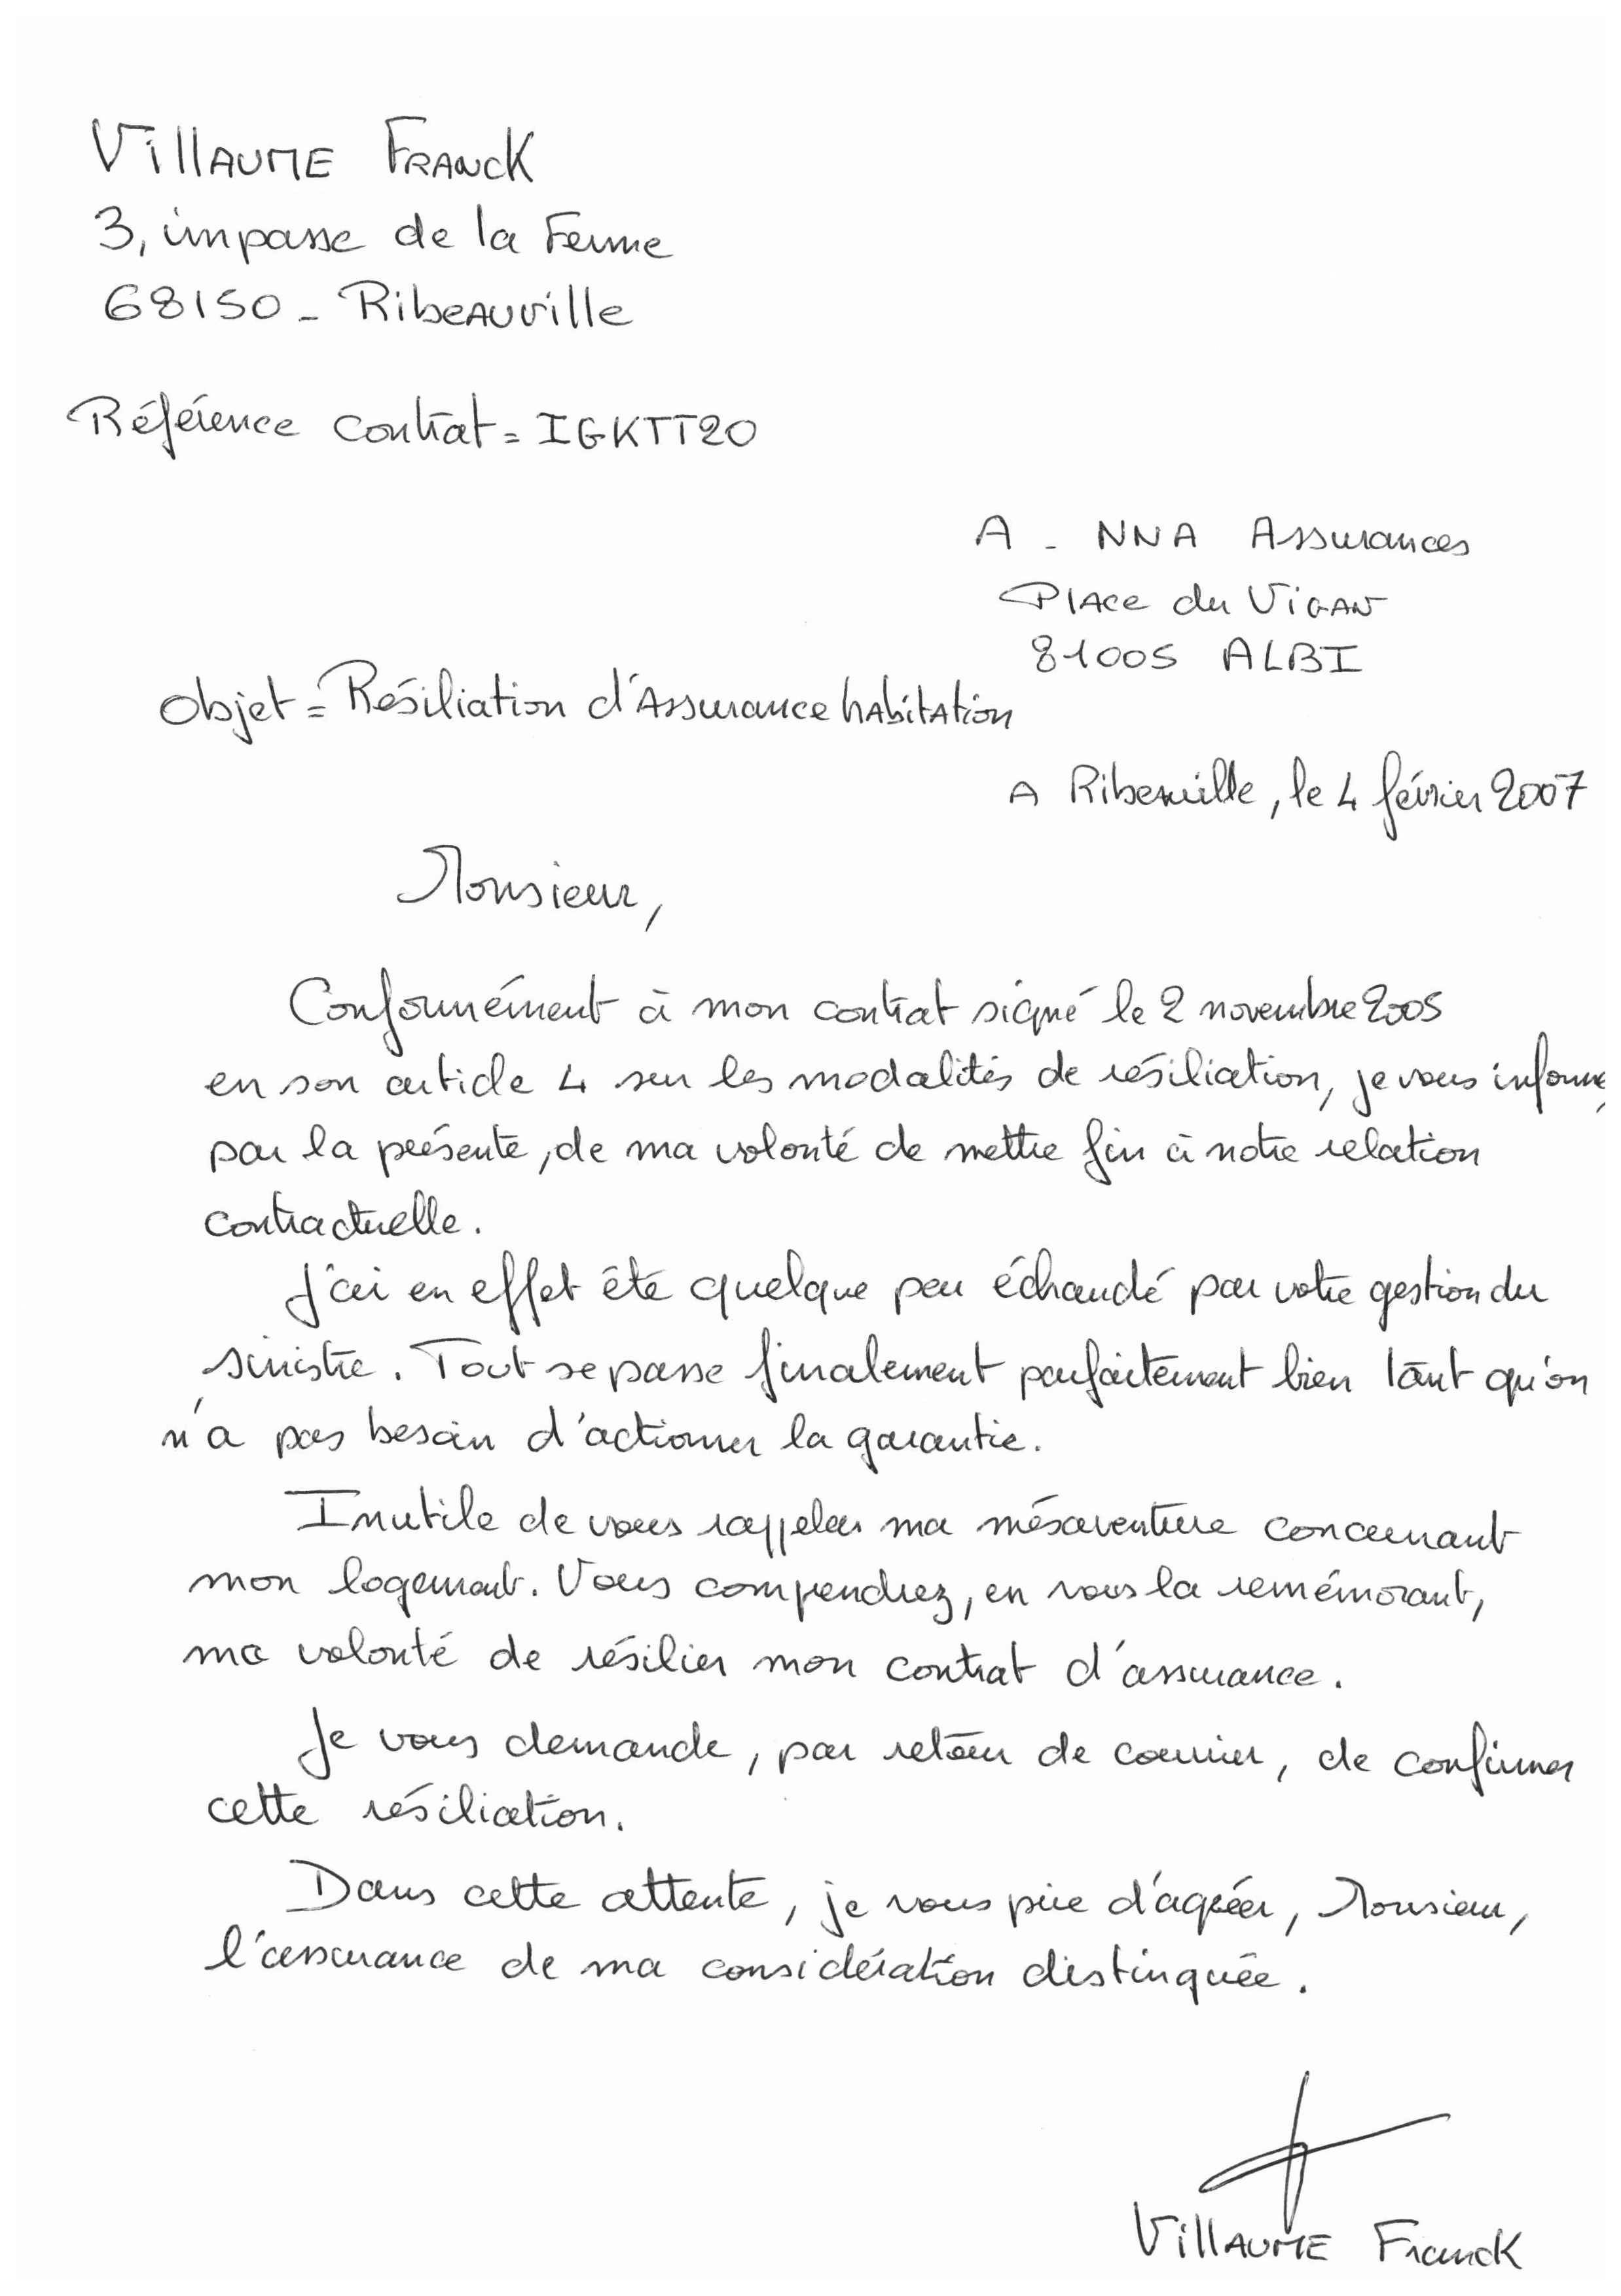 VillAUME FRANCK
3, impasse de la Ferme
68150 - RibeAuville
Référence contrat = IGKTT20
A - NNA Assurances
Place du Vigan
81005 ALBI
Objet = Résiliation d'Assurance habitation
A Ribeauville, le 4 février 2007
Monsieur,
Conformément à mon contrat signé le 2 novembre 2005
en son article 4 sur les modalités de résiliation, je vous informe,
par la présente, de ma volonté de mettre fin à notre relation
contractuelle.
J'ai en effet été quelque peu échaudé par votre gestion du
sinistre. Tout se passe finalement parfaitement bien tant qu'on
n'a pas besoin d'actionner la garantie.
Inutile de vous rappeler ma mésaventure concernant
mon logement. Vous comprendrez, en vous la remémorant,
ma volonté de résilier mon contrat d'assurance.
Je vous demande, par retour de courrier, de confirmer
cette résiliation.
Dans cette attente, je vous prie d'agréer, Monsieur,
l'assurance de ma considération distinguée.
VillAUME Franck